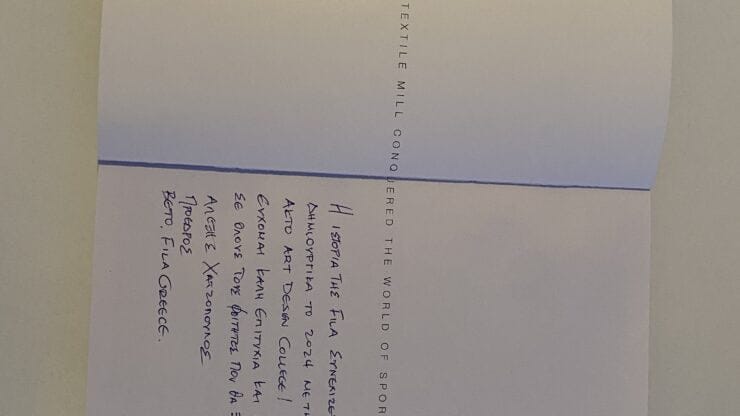 TEXTILE MILL CONQUERED THE WORLD OF SPOR
Η ΙΣΤΟΡΙΑ ΤΗΣ FILA ΣΥΝΕΧΙΖΕ
ΔΗΜΙΟΥΡΓΙΚΑ ΤΟ 2024 ΜΕ ΤΗ
AKTO ART DESIGN COLLEGE!
ΕΥΧΟΜΑΙ ΚΑΛΗ ΕΠΙΤΥΧΙΑ ΚΑΙ
ΣΕ ΟΛΟΥΣ ΤΟΥΣ ΦΟΙΤΗΤΕΣ ΠΟΥ ΘΑ
ΑΛΕΞΗΣ ΧΑΤΖΟΠΟΥΛΟΣ
ΠΡΟΕΔΡΟΣ
BETO. FILA GREECE.